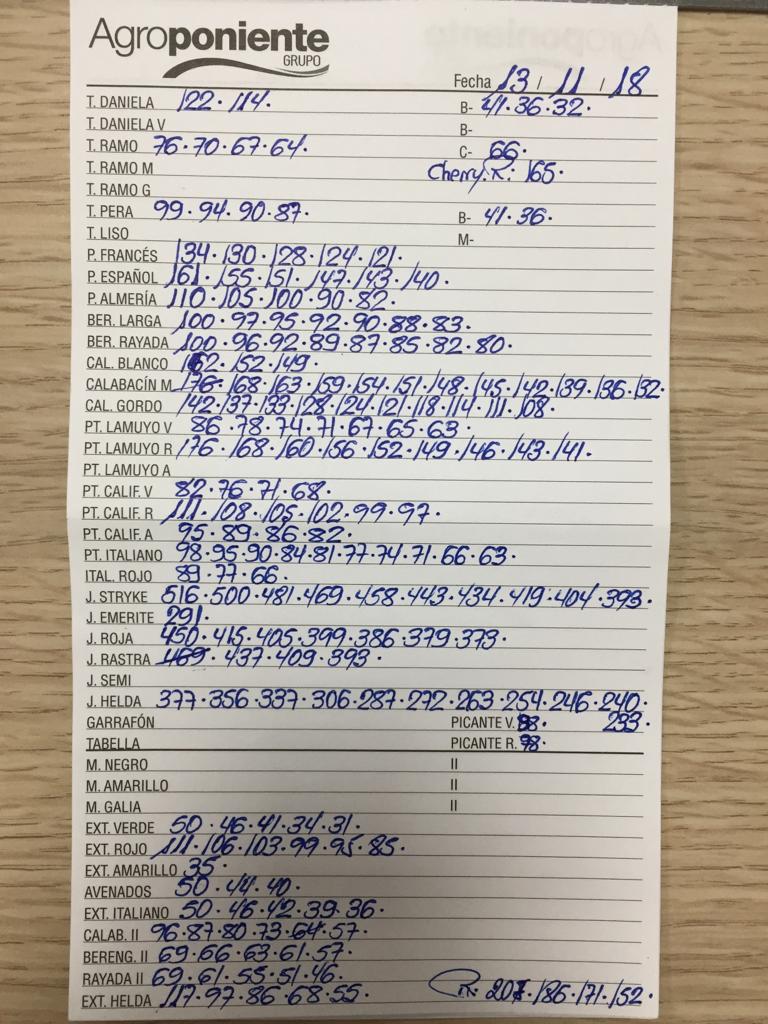 Agroponiente
GRUPO
Fecha 13 / 11 / 18
T. DANIELA 122 · 114 · B- 41 · 36 · 32 ·
T. DANIELA V B-
T. RAMO 76 · 70 · 67 · 64 · C- 66 ·
T. RAMO M Cherry.R.: 165 ·
T. RAMO G
T. PERA 99 · 94 · 90 · 87 · B- 41 · 36 ·
T. LISO M-
P. FRANCÉS 134 · 130 · 128 · 124 · 121 ·
P. ESPAÑOL 161 · 155 · 151 · 147 · 143 · 140 ·
P. ALMERÍA 110 · 105 · 100 · 90 · 82 ·
BER. LARGA 100 · 97 · 95 · 92 · 90 · 88 · 83 ·
BER. RAYADA 100 · 96 · 92 · 89 · 87 · 85 · 82 · 80 ·
CAL. BLANCO 162 · 152 · 149 ·
CALABACÍN M 176 · 168 · 163 · 159 · 154 · 151 · 148 · 145 · 142 · 139 · 136 · 132 ·
CAL. GORDO 142 · 137 · 133 · 128 · 124 · 121 · 118 · 114 · 111 · 108 ·
PT. LAMUYO V 86 · 78 · 74 · 71 · 67 · 65 · 63 ·
PT. LAMUYO R 176 · 168 · 160 · 156 · 152 · 149 · 146 · 143 · 141 ·
PT. LAMUYO A
PT. CALIF. V 82 · 76 · 71 · 68 ·
PT. CALIF. R 111 · 108 · 105 · 102 · 99 · 97 ·
PT. CALIF. A 95 · 89 · 86 · 82 ·
PT. ITALIANO 98 · 95 · 90 · 84 · 81 · 77 · 74 · 71 · 66 · 63 ·
ITAL. ROJO 89 · 77 · 66 ·
J. STRYKE 516 · 500 · 481 · 469 · 458 · 443 · 434 · 419 · 404 · 393 ·
J. EMERITE 291 ·
J. ROJA 450 · 415 · 405 · 399 · 386 · 379 · 373 ·
J. RASTRA 469 · 437 · 409 · 393 ·
J. SEMI
J. HELDA 377 · 356 · 337 · 306 · 287 · 272 · 263 · 254 · 246 · 240 ·
GARRAFÓN PICANTE V. 233 ·
TABELLA PICANTE R. 98 ·
M. NEGRO II
M. AMARILLO II
M. GALIA II
EXT. VERDE 50 · 46 · 41 · 34 · 31 ·
EXT. ROJO 111 · 106 · 103 · 99 · 95 · 85 ·
EXT. AMARILLO 35 ·
AVENADOS 50 · 44 · 40 ·
EXT. ITALIANO 50 · 46 · 42 · 39 · 36 ·
CALAB. II 96 · 87 · 80 · 73 · 64 · 57 ·
BERENG. II 69 · 66 · 63 · 61 · 57 ·
RAYADA II 69 · 61 · 55 · 51 · 46 ·
EXT. HELDA 117 · 97 · 86 · 68 · 55 · 207 · 186 · 171 · 152 ·